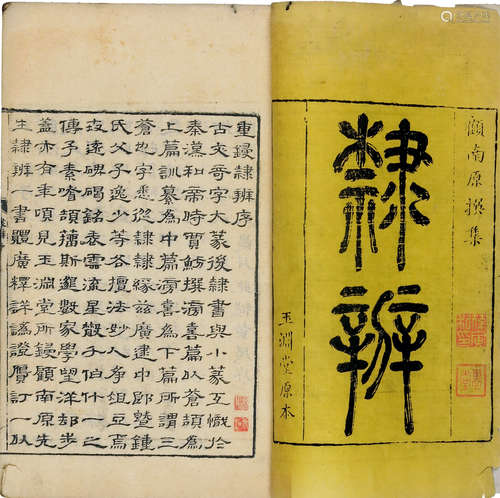 顧南原撰集
隸辨
玉淵堂原本
重鋟隸辨序
古文奇字大篆後隸書與小篆互嬗於
秦漢和帝時賈魴撰滂喜篇以蒼頡為
上篇訓纂為中篇滂喜為下篇所謂三
蒼也字悉從隸隸緣茲廣逮中郎暨鍾
氏父子逸少等各擅法妙人爭俎豆焉
碑碣銘表雲流星散什一
傳予素嗜頡籀斯邈數家學望洋却步
蓋亦有年頃見玉淵堂所鋟顧南原先
生隸辨一書體廣釋詳譌證贗訂一以